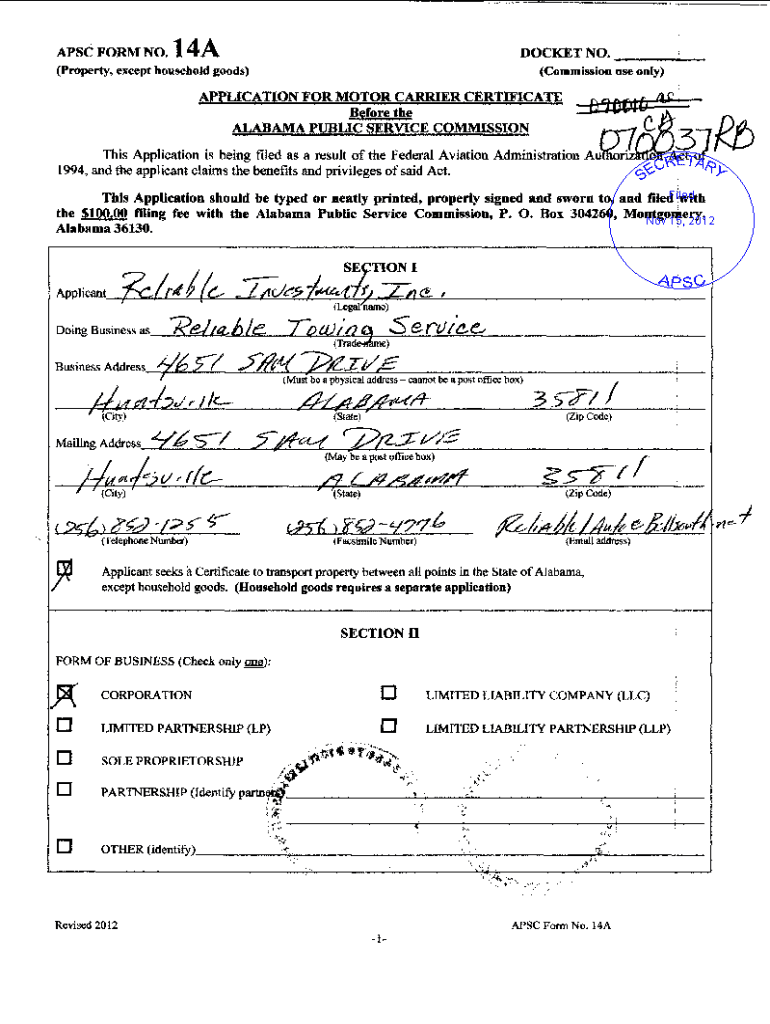 APSC FORM NO. 14A
DOCKET NO.
(Property, except household goods)
(Commission use only)
APPLICATION FOR MOTOR CARRIER CERTIFICATE
Before the
ALABAMA PUBLIC SERVICE COMMISSION
070837RB
This Application is being filed as a result of the Federal Aviation Administration Authorization Act of
1994, and the applicant claims the benefits and privileges of said Act.
SECRETARY
Filed
Nov 15, 2012
APSC
This Application should be typed or neatly printed, properly signed and sworn to, and filed with
the $100.00 filing fee with the Alabama Public Service Commission, P. O. Box 304260, Montgomery,
Alabama 36130.
SECTION I
Applicant Reliable Investments, Inc.
(Legal name)
Doing Business as Reliable Towing Service
(Trade name)
Business Address 4651 SAM DRIVE
(Must be a physical address – cannot be a post office box)
Huntsville ALABAMA 35811
(City) (State) (Zip Code)
Mailing Address 4651 SAM DRIVE
(May be a post office box)
Huntsville ALABAMA 35811
(City) (State) (Zip Code)
(256) 852-1255 (256) 852-4776 Reliable1Auto@Bellsouth.net
(Telephone Number) (Facsimile Number) (Email address)
Applicant seeks a Certificate to transport property between all points in the State of Alabama,
except household goods. (Household goods requires a separate application)
SECTION II
FORM OF BUSINESS (Check only one):
CORPORATION
LIMITED LIABILITY COMPANY (LLC)
LIMITED PARTNERSHIP (LP)
LIMITED LIABILITY PARTNERSHIP (LLP)
SOLE PROPRIETORSHIP
PARTNERSHIP (Identify partners)
OTHER (identify)
Revised 2012
APSC Form No. 14A
-1-